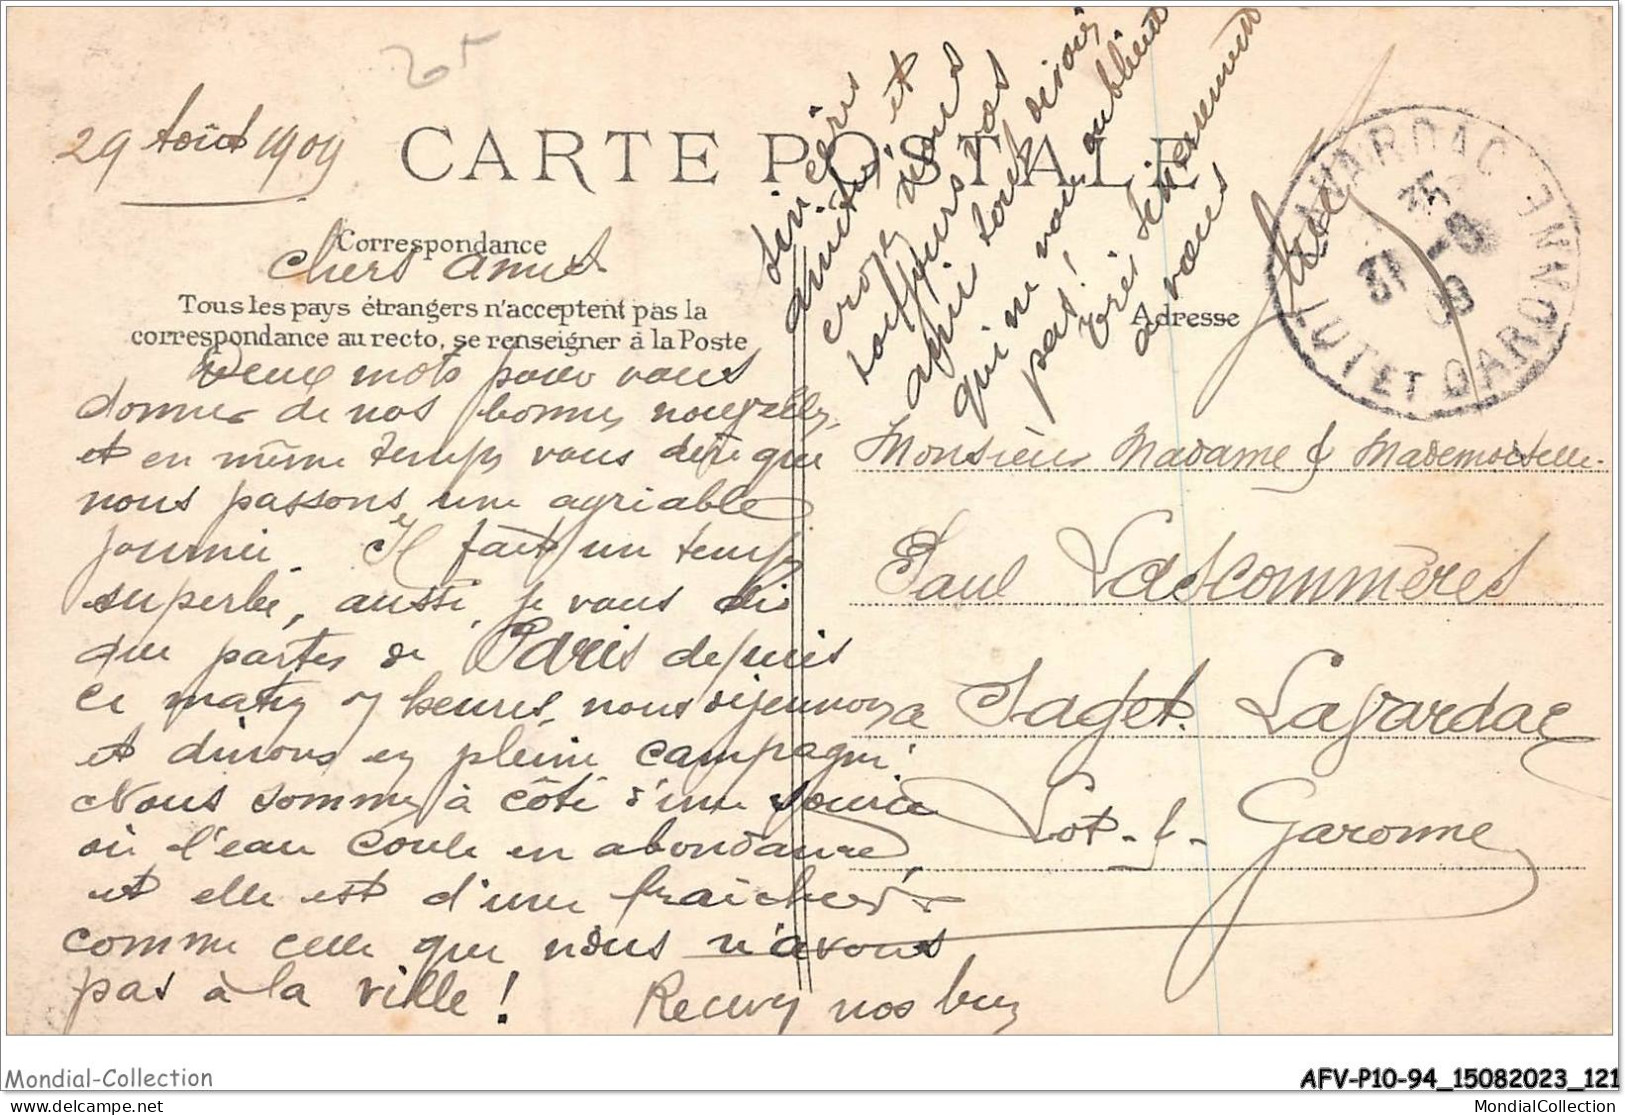 29 Août 1909
CARTE POSTALE
Correspondance
Chers amis
Tous les pays étrangers n'acceptent pas la
correspondance au recto, se renseigner à la Poste
Deux mots pour vous
donner de nos bonnes nouvelles
et en même temps vous dire que
nous passons une agréable
journée. Il fait un temps
superbe, aussi, je vous dis
que partis de Paris depuis
ce matin 7 heures, nous déjeunons
et dinons en pleine campagne.
Nous sommes à côté d'une source
où l'eau coule en abondance,
et elle est d'une fraîcheur
comme celle que nous n'avons
pas à la ville !
Recevez nos bien
sincères
amitiés et
croyez nous
toujours vos
qui ne vous oublient
pas !
Bien sincèrement
à vous
Adresse
LAVARDAC
31 -8
09
LOT ET GARONNE
Monsieur Madame & Mademoiselle
Paul Lascommères
a Saget. Lavardac
Lot-&-Garonne
Mondial-Collection
AFV-P10-94_15082023_121
delcampe.net
MondialCollection